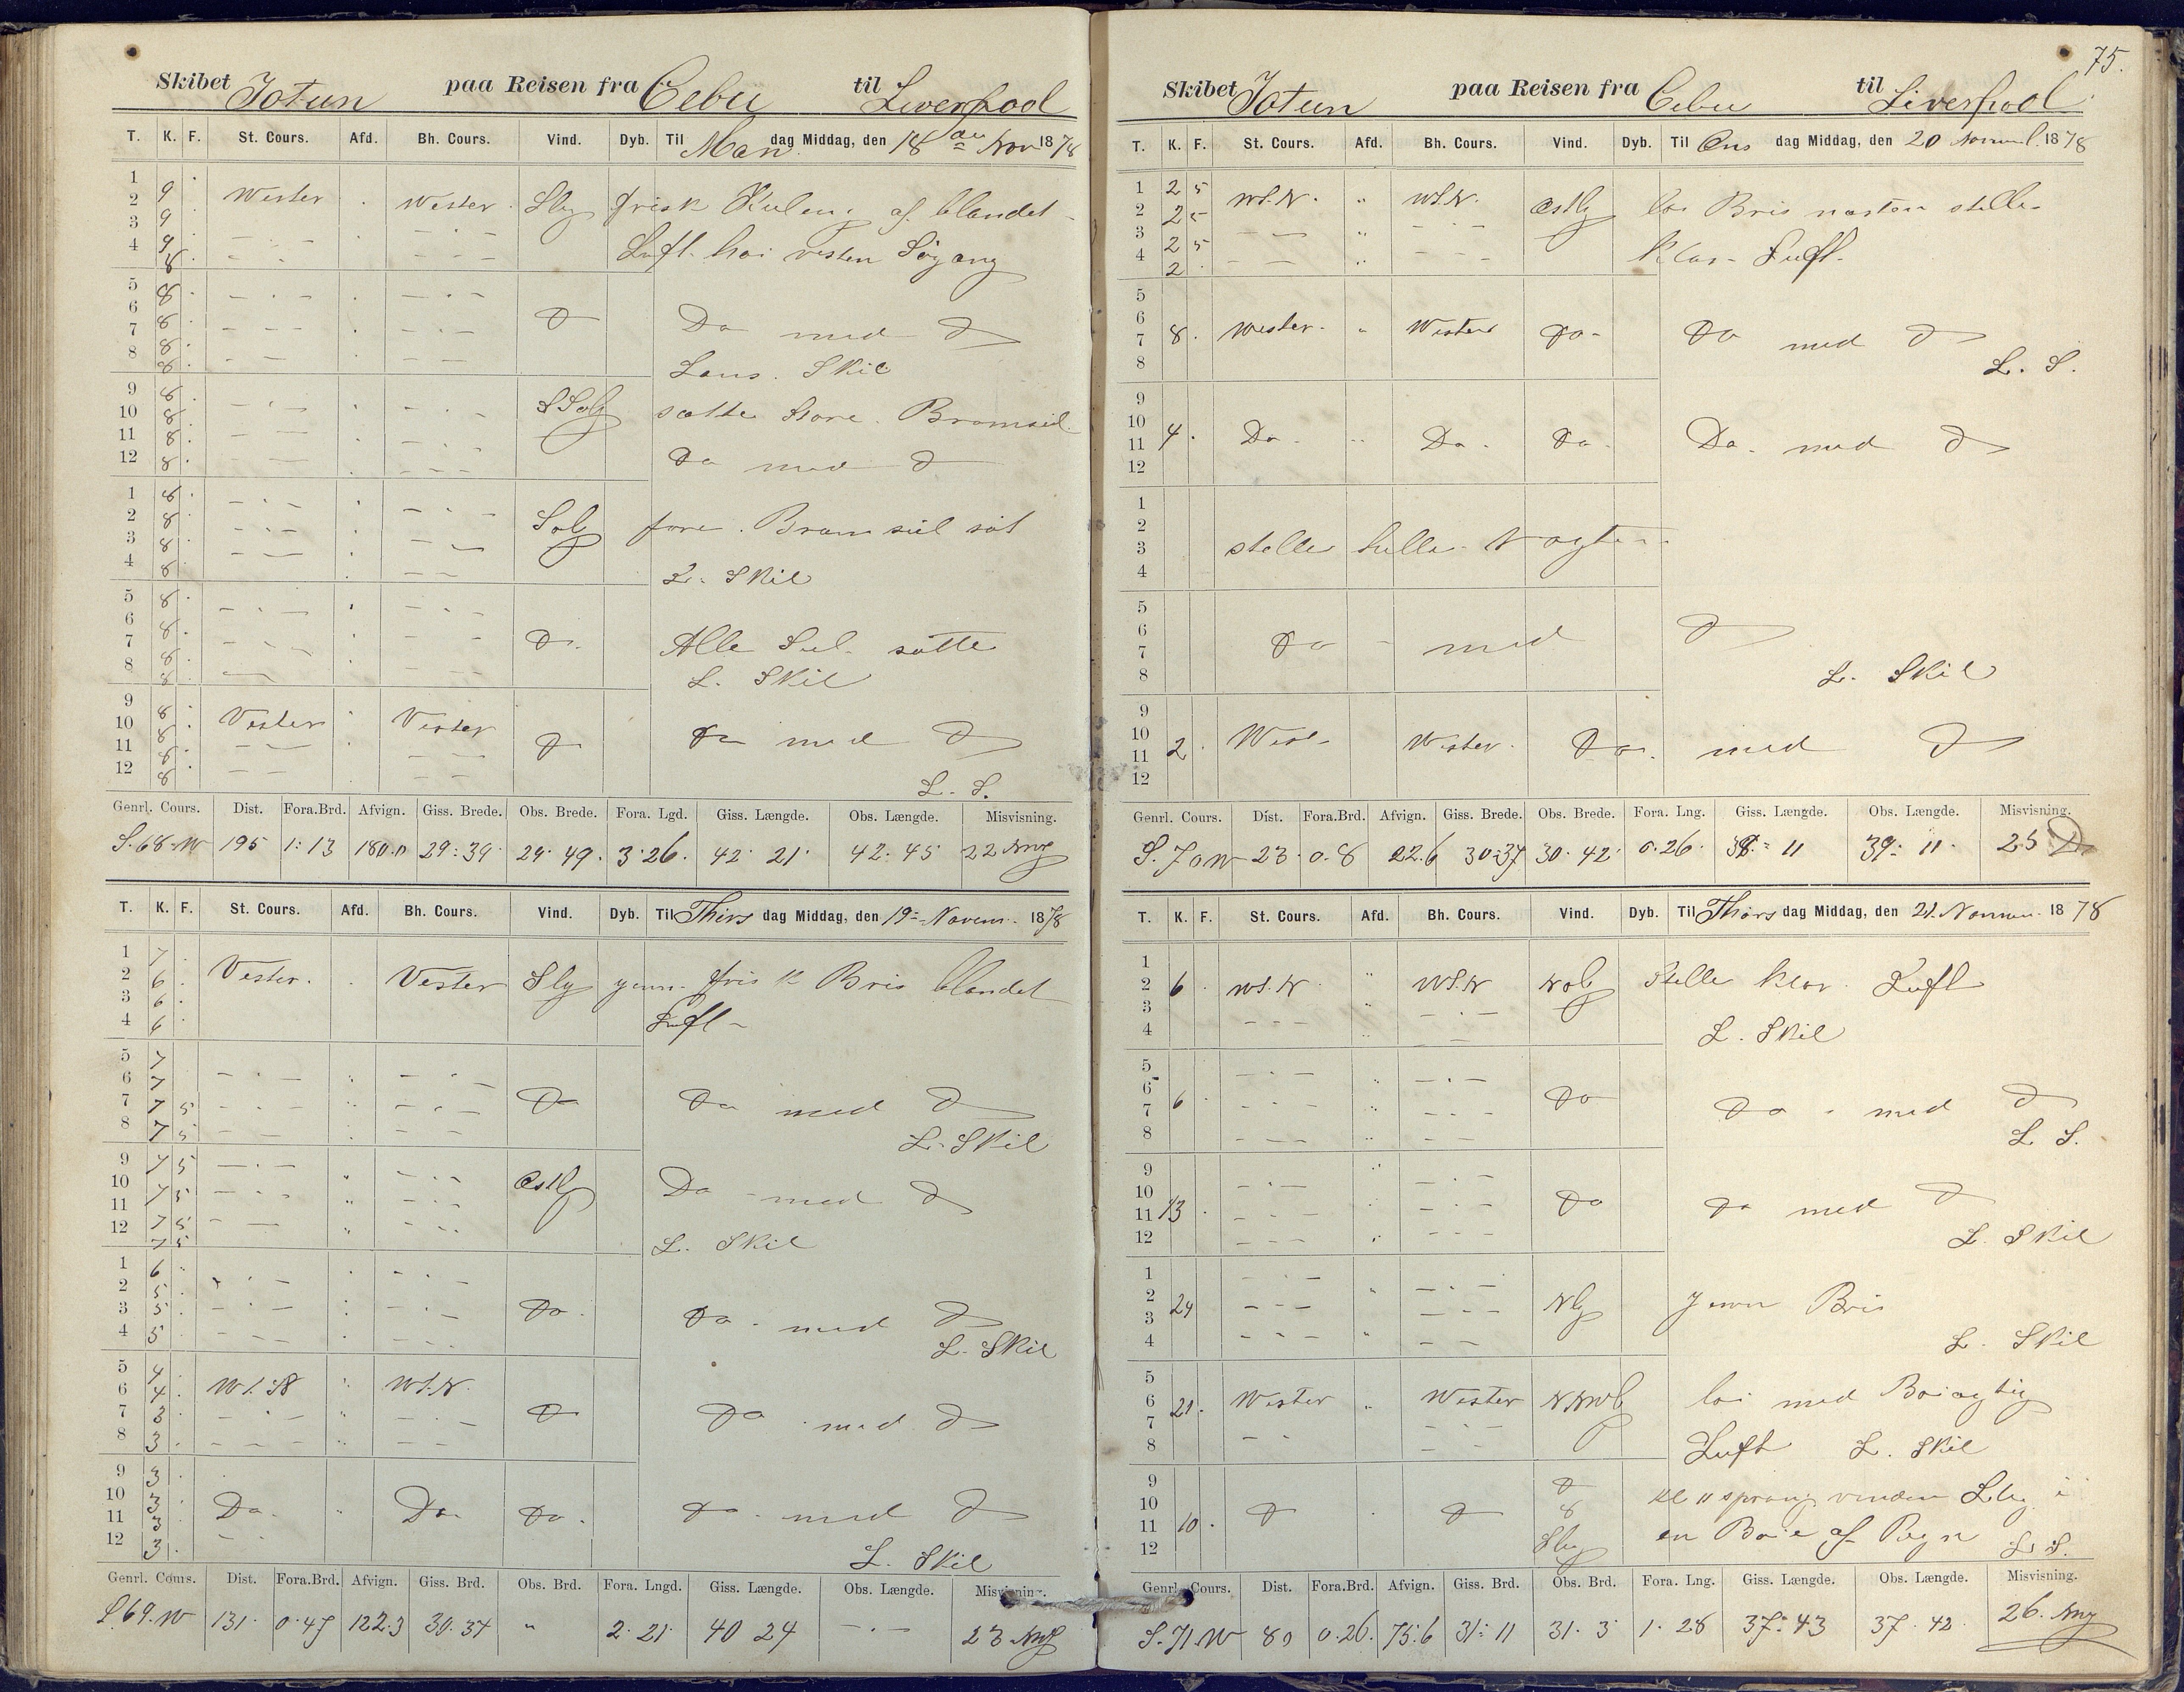 Skibet Jotun paa Reisen fra Cebu til Liverpool
T. K. F. St. Cours. Afd. Bh. Cours. Vind. Dyb. Til Man dag Middag, den 18 Nov 1878
1
2 9 Wester Wester Sly frisk Kuling af blandet
3 9
4 9 Luft. høi vesten Søgang
8
5 8
6 8 Do Do med Do
7 8
8 8 Lans. Skil
9 8 SSoly sætte Store Bramseil
10 8
11 8
12 8 Do med Do
1 8
2 8 Soly fore Bramseil sat
3 8
4 8 L. Skil
5 8
6 8
7 8 Do. Alle Seil satte
8 8 L. Skil
9 8 Vester Vester
10 8 Do Do med Do
11 8
12 8 L. S.
Genrl. Cours. Dist. Fora.Brd. Afvign. Giss. Brede. Obs. Brede. Fora. Lgd. Giss. Længde. Obs. Længde. Misvisning.
S. 68 W 195 1:13 180.0 29:39 29.49. 3.26. 42. 21. 42:45 22 NWg
T. K. F. St. Cours. Afd. Bh. Cours. Vind. Dyb. Til Thirs dag Middag, den 19 Novem. 1878
1 7
2 6 Vester. Vester Sly jevn frisk Bris blandet
3 6
4 6 Luft
5 7
6 7
7 7 5 Do Do med Do
8 7 5 L. Skil
9 7 5
10 7 5 Ostly Do med Do
11 7 5
12 7 5 L. Skil
1 6
2 5
3 5 Do Do med Do
4 5 L. Skil
5 4
6 4 WSW WSW
7 3 Do Do med Do
8 3
9 3
10 3
11 3 Do Do Do Do med Do
12 3 L. Skil
Genrl. Cours. Dist. Fora.Brd. Afvign. Giss. Brd. Obs. Brd. Fora. Lngd. Giss. Længde. Obs. Længde. Misvisning.
S. 69. W 131. 0.47 122.3 30.37 " 2.21. 40 24 23 NWg
75.
Skibet Jotun paa Reisen fra Cebu til Liverpool
T. K. F. St. Cours. Afd. Bh. Cours. Vind. Dyb. Til Ons dag Middag, den 20 1878
1 2 5 WSW. " WSW. Ostly Bris næsten stille
2 2 5
3 2 5
4 2 Klar Luft
5
6
7 8 Wester " Wester Do Do med Do
8 L. S.
9
10
11 4 Do Do Do Do med Do
12
1
2
3 stelle helle Vagten
4
5
6
7 Do med Do
8 L. Skil
9
10
11 2 Wester. Do med Do
12
Genrl. Cours. Dist. Fora.Brd. Afvign. Giss. Brede. Obs. Brede. Fora. Lng. Giss. Længde. Obs. Længde. Misvisning.
S. 70 W 23 0.8 22.6 30.37 30.42 0.26 11 39: 11. 25 Do
T. K. F. St. Cours. Afd. Bh. Cours. Vind. Dyb. Til Thors dag Middag, den 21. 1878
1
2 6 WSW WSW Stelle klar Luft
3
4 L. Skil
5
6
7 6 Do Do med Do
8 L. S.
9
10
11 13 Do Do med Do
12 L. Skil
1
2
3 24 Nly jevn Bris
4 L. Skil
5
6 21. Wester " Wester NNWly med Boiagtig
7
8 Luft L. Skil
9 Do
10 Kl 11 sprang vinden Sly i
11 10 Do Do
12 Sly en Boie af Regn L. S.
Genrl. Cours. Dist. Fora.Brd. Afvign. Giss. Brd. Obs. Brd. Fora. Lng. Giss. Længde. Obs. Længde. Misvisning.
S. 71 W 80 0.26. 75.6 31: 11 31. 3 1. 28 37:43 37. 42. 26. NWg